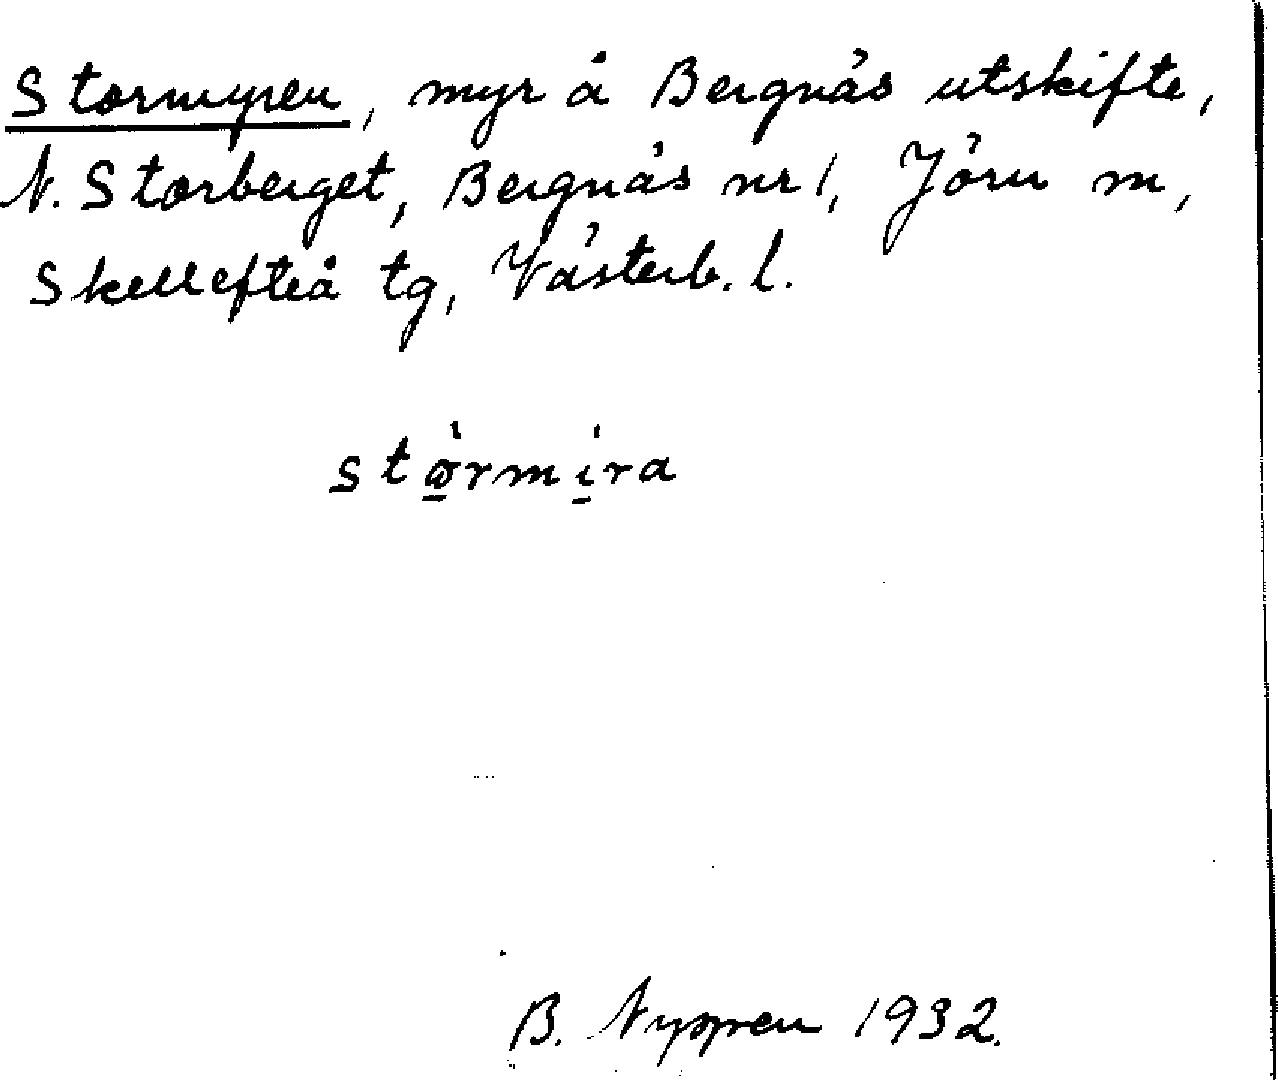 Stormyren, myr å Bergnäs utskifte,
N. Storberget, Bergnäs nr 1, Jörn m,
Skellefteå tg, Västerb. l.
B. 1932.